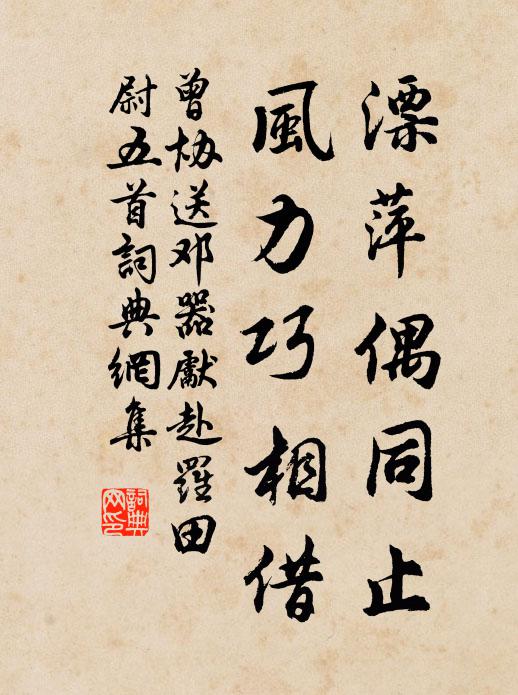 漂萍偶同止
風力巧相借
曾协送邓器獻赴羅田
尉五首詞典網集
詞典
网印